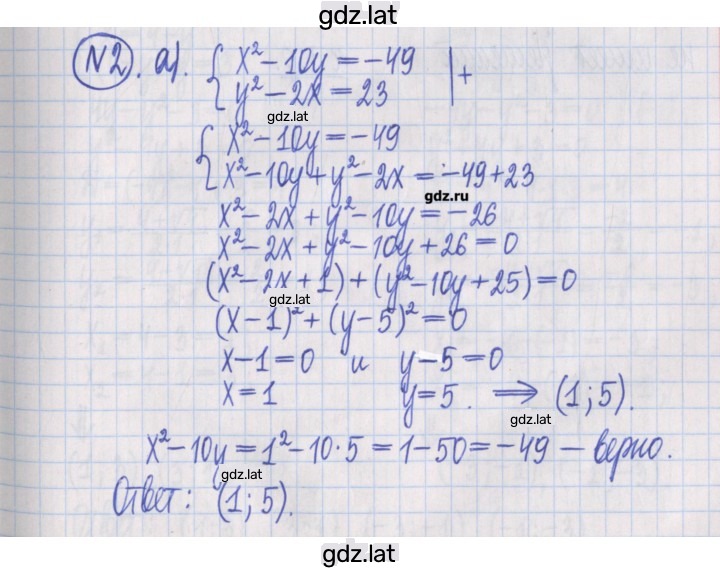 gdz.lat
№2. а). { x² − 10y = −49 | +
y² − 2x = 23
gdz.lat
{ x² − 10y = −49
x² − 10y + y² − 2x = −49 + 23
gdz.ru
x² − 2x + y² − 10y = −26
gdz.lat
x² − 2x + y² − 10y + 26 = 0
(x² − 2x + 1) + (y² − 10y + 25) = 0
gdz.lat
(x − 1)² + (y − 5)² = 0
x − 1 = 0 и y − 5 = 0
gdz.lat
x = 1 y = 5. ⟹ (1; 5).
gdz.lat
x² − 10y = 1² − 10·5 = 1 − 50 = −49 − верно.
gdz.lat
Ответ: (1; 5).
gdz.lat